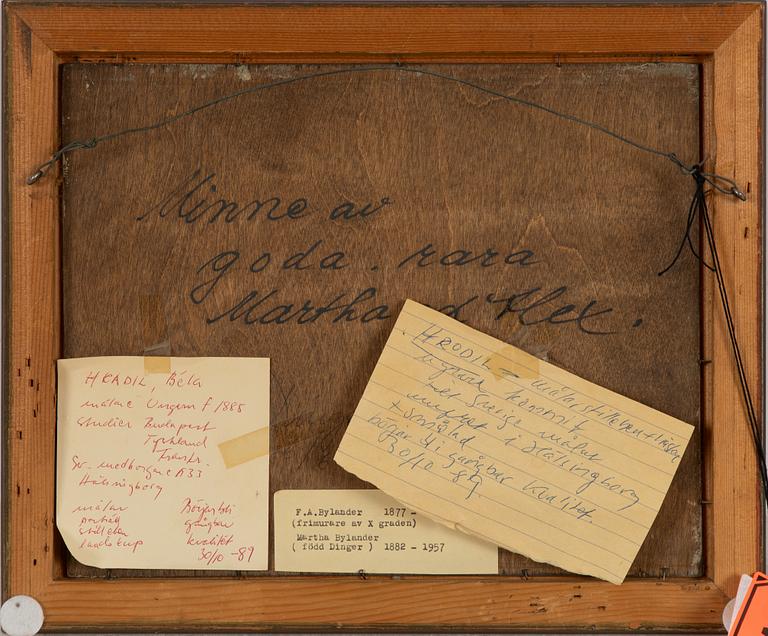 Minne av
goda . rara
Martha o Alex.
HRADIL, Béla
målare Ungern f 1885
studier Budapest
Tyskland
Frankr.
Sv. medborgare 1933
Hälsingborg
målar
porträtt
stilleben
landskap
gångbar
kvalitet
30/10 -89
F.A.Bylander 1877 -
(frimurare av X graden)
Martha Bylander
( född Dinger ) 1882 - 1957
HRODIL = målar stilleben +
ungrare kommit
till Sverige målat
mycket i Hälsingborg
+ småland
gångbar kvalitet.
30/10 -89.